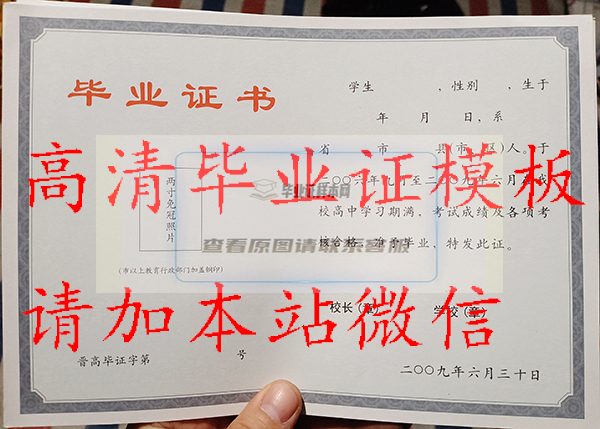 毕业证书
学生 ，性别 ，生于
年 月 日，系
省 市 县(市、区)人。于
二〇〇六年九月至二〇〇九年六月在我
校高中学习期满，考试成绩及各项考
核合格，准予毕业，特发此证。
两寸免冠照片
(市以上教育行政部门加盖钢印)
校长（章） 学校（章）
晋高毕证字第 号
二〇〇九年六月三十日
高清毕业证模板
请加本站微信
查看原图请联系客服